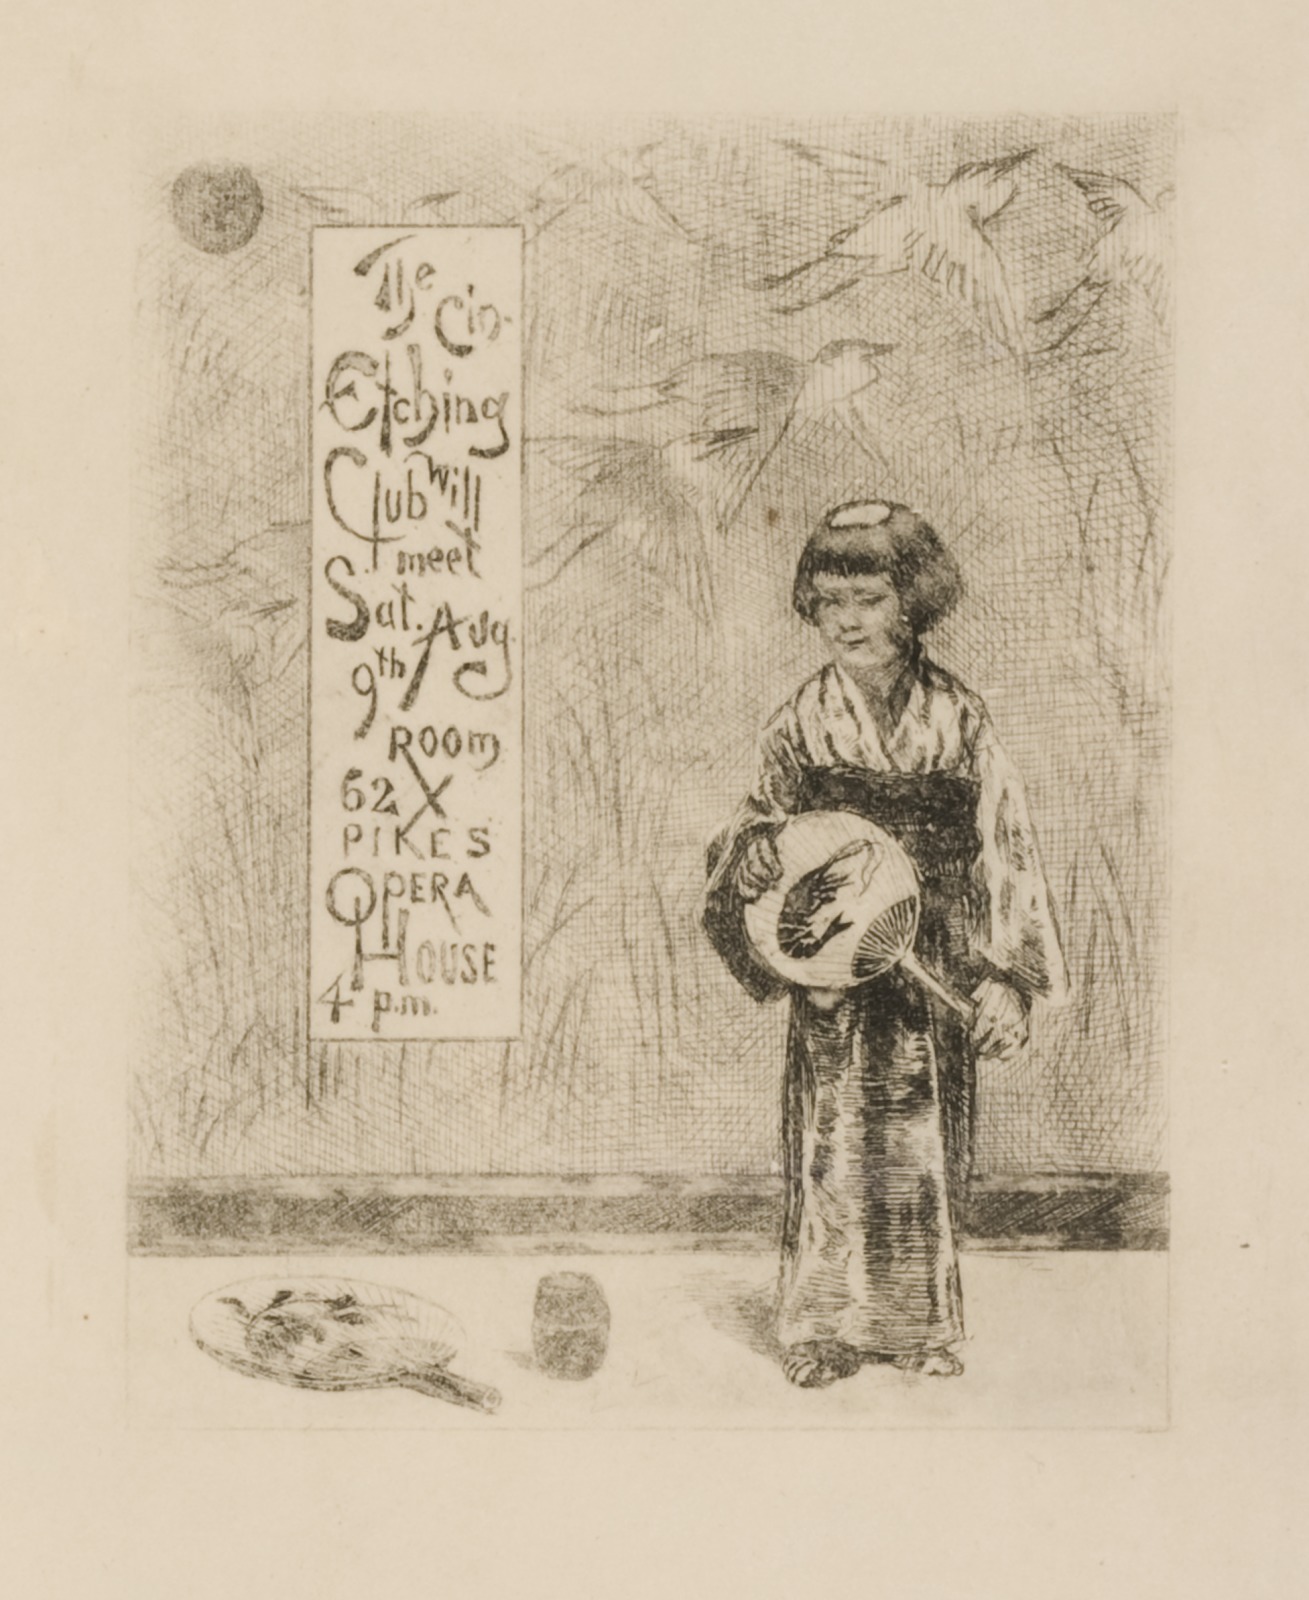 The Cin.
Etching
Club will
meet
Sat. Aug.
9th
ROOM
62 X
PIKES
OPERA
HOUSE
4 p.m.